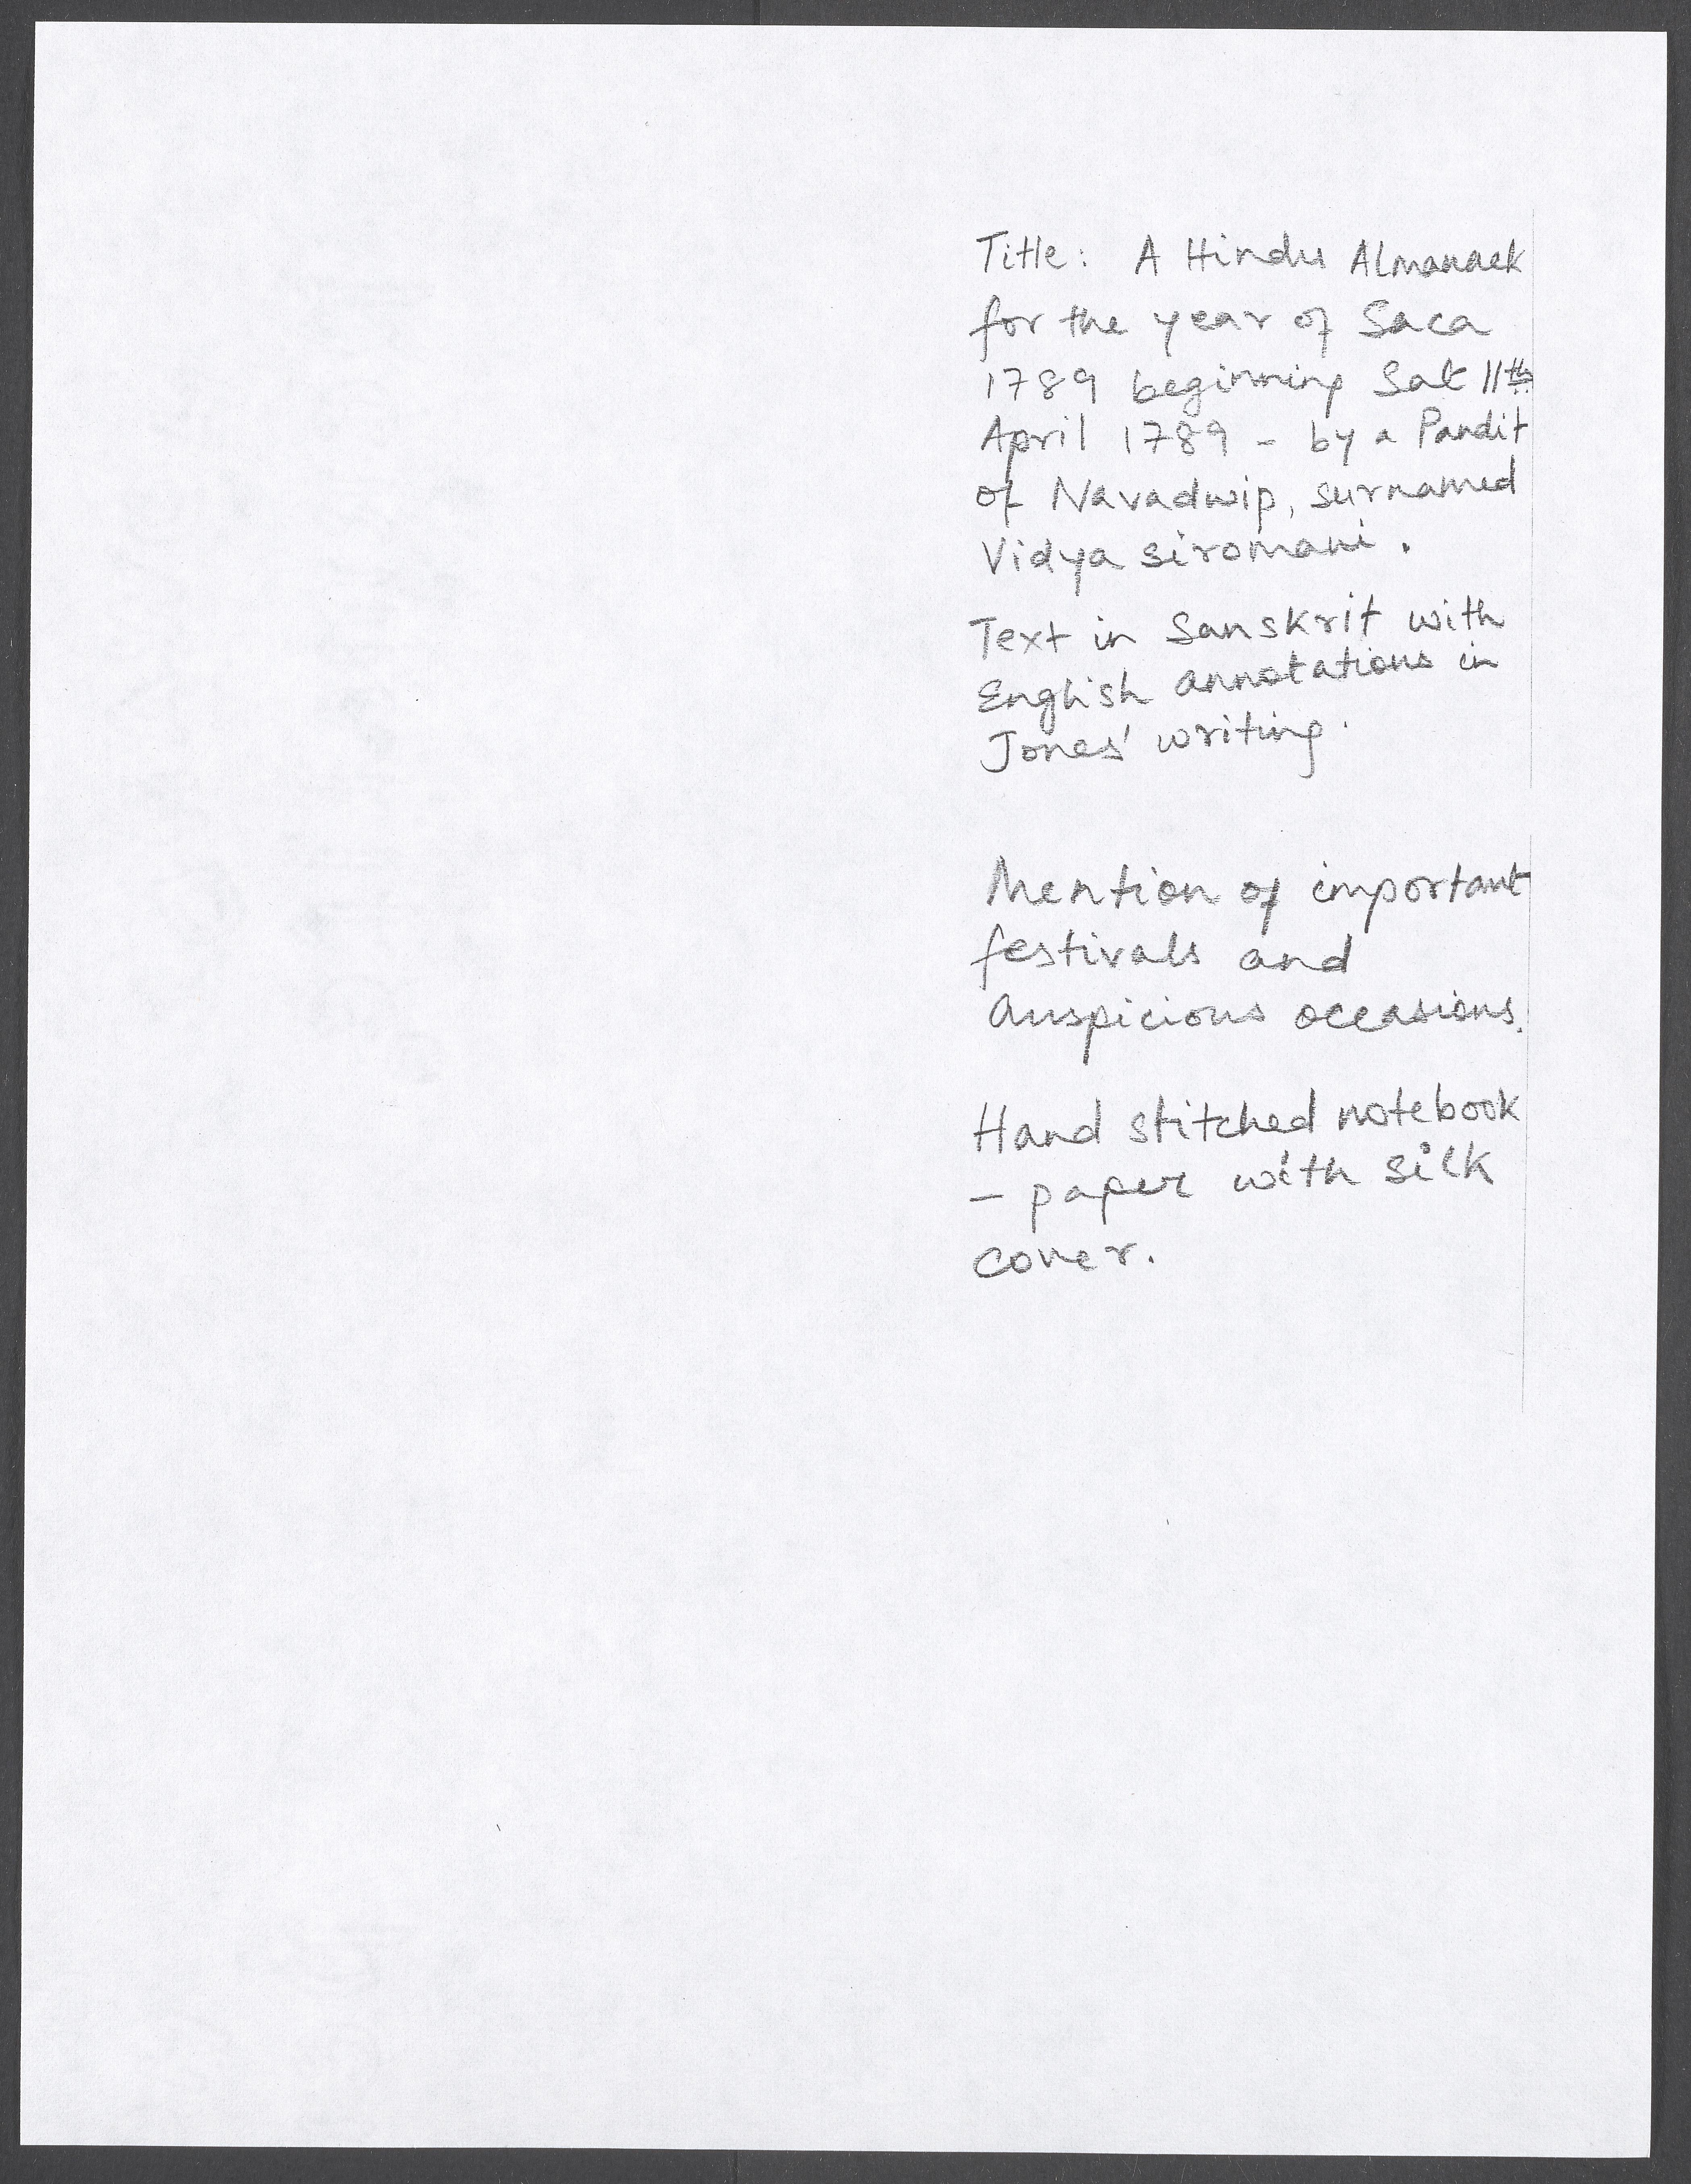 Title: A Hindu Almanack
for the year of Saca
1789 beginning Sat 11th
April 1789 - by a Pandit
of Navadwip, surnamed
Vidya siromani.
Text in Sanskrit with
English annotations in
Jones' writing.
Mention of important
festivals and
auspicious occasions.
Hand stitched notebook
- paper with silk
cover.